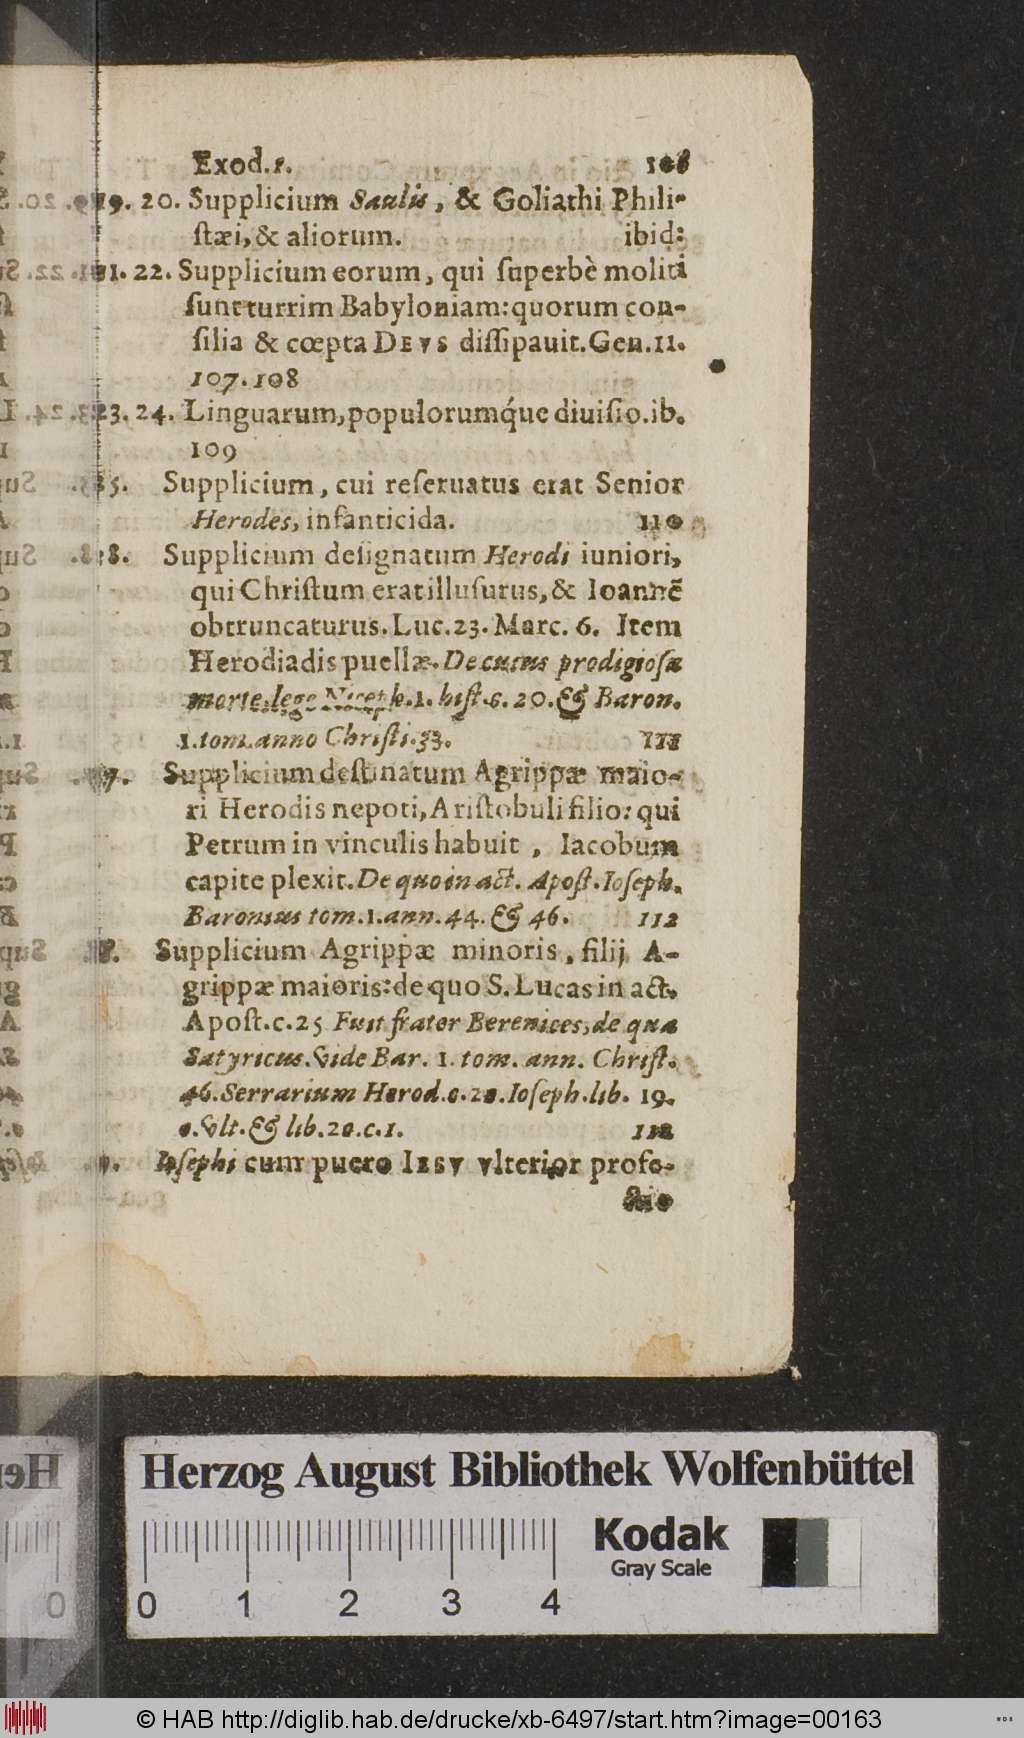 Exod.1. 108
19. 20. Supplicium Saulis, & Goliathi Phili-
stæi, & aliorum. ibid:
21. 22. Supplicium eorum, qui superbè moliti
sunt turrim Babyloniam: quorum con-
silia & cœpta DEVS dissipauit. Gen. 11.
107. 108
23. 24. Linguarum, populorumq́ue diuisio. ib.
109
25. Supplicium, cui reseruatus erat Senior
Herodes, infanticida. 110
Supplicium designatum Herodi iuniori,
qui Christum erat illusurus, & Ioannē
obtruncaturus. Luc. 23. Marc. 6. Item
Herodiadis puellæ. De cuius prodigiosa
morte, lege Niceph. 1. hist. c. 20. & Baron.
1. tom. anno Christi. 33. 111
7. Supplicium destinatum Agrippæ maio-
ri Herodis nepoti, Aristobuli filio: qui
Petrum in vinculis habuit, Iacobum
capite plexit. De quo in act. Apost. Ioseph.
Baronius tom. 1. ann. 44. & 46. 112
8. Supplicium Agrippæ minoris, filij A-
grippæ maioris: de quo S. Lucas in act.
Apost. c. 25 Fuit frater Berenices, de qua
Satyricus. Vide Bar. 1. tom. ann. Christ.
46. Serrarium Herod. c. 20. Ioseph. lib. 19.
c. vlt. & lib. 20. c. 1. 112
9. Iosephi cum puero IESV vlterior profe-
ctio
Herzog August Bibliothek Wolfenbüttel
Kodak
Gray Scale
0 1 2 3 4
© HAB http://diglib.hab.de/drucke/xb-6497/start.htm?image=00163